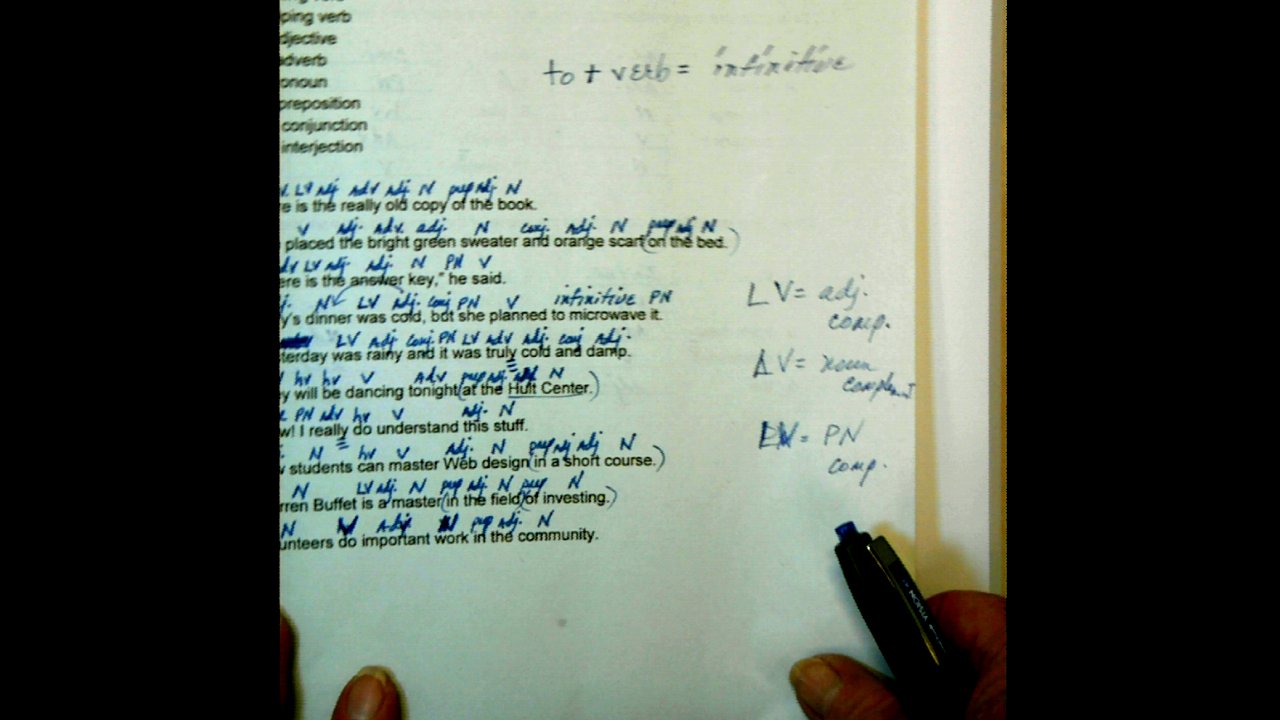 ping verb
djective
adverb
onoun
preposition
conjunction
interjection
to + verb = infinitive
LV adj Adv adj N prep adj. N
e is the really old copy of the book.
V adj. Adv. adj. N conj. Adj. N prep adj N
placed the bright green sweater and orange scarf (on the bed.)
adv LV adj. adj. N PN V
ere is the answer key," he said.
N LV adj. conj PN V infinitive PN
y's dinner was cold, but she planned to microwave it.
LV Adj conj. PN LV adv adj. conj Adj.
sterday was rainy and it was truly cold and damp.
hv hv V Adv prep adj N
y will be dancing tonight (at the Hult Center.)
PN adv hv V adj. N
w! I really do understand this stuff.
N hv V Adj. N prep adj adj N
students can master Web design (in a short course.)
N LV adj. N prep adj. N prep N
rren Buffet is a master (in the field) (of investing.)
N V Adj N prep adj. N
unteers do important work in the community.
LV = adj.
comp.
LV = noun
complement
LV = PN
comp.